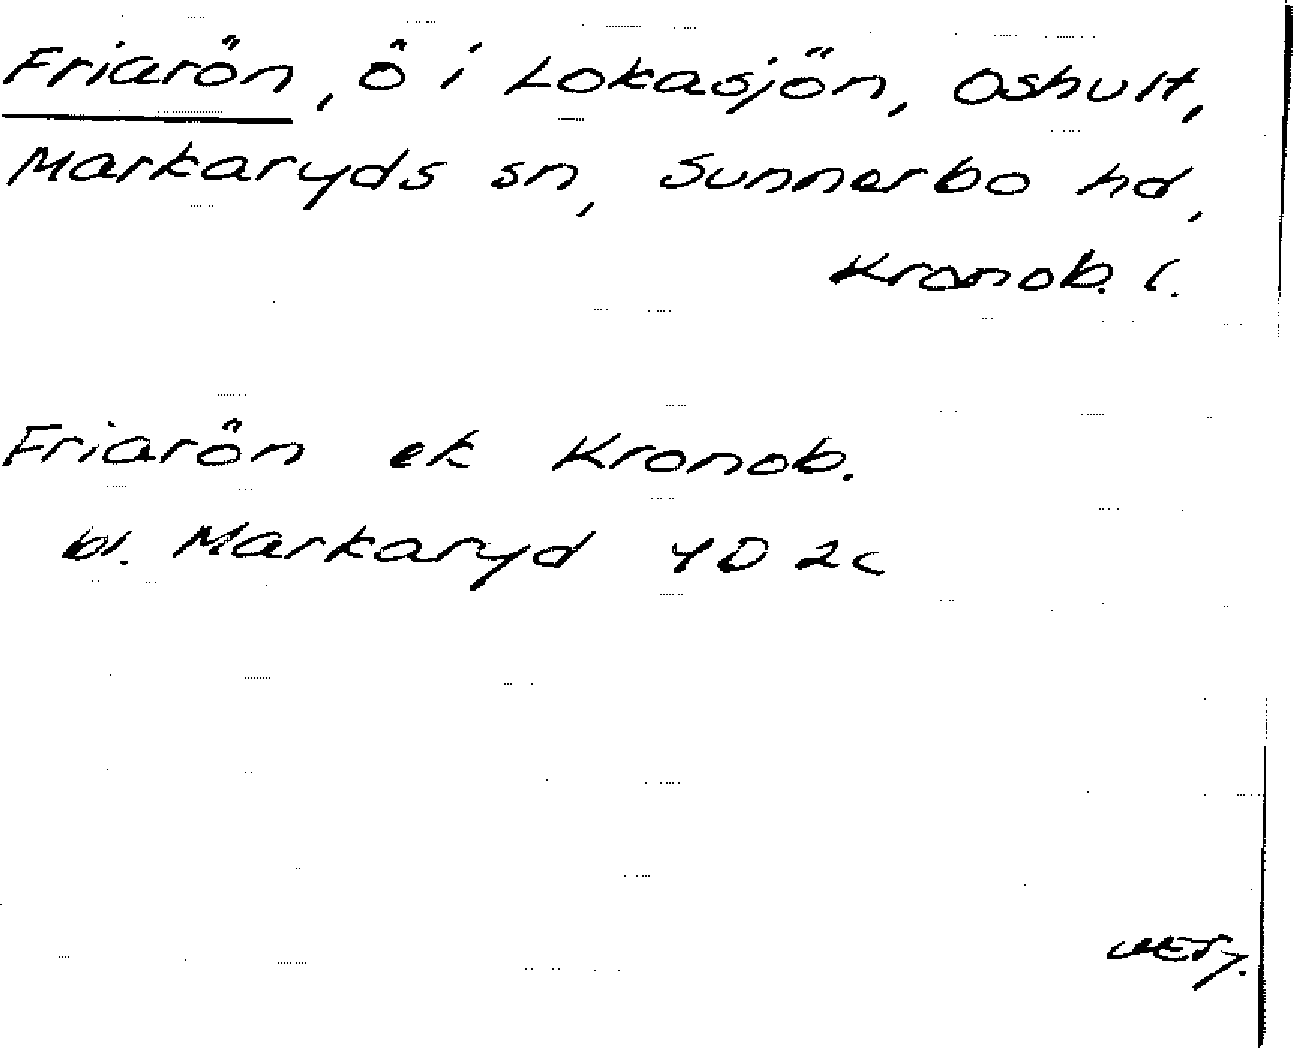 Friarön, ö i Lokasjön, Oshult,
Markaryds sn, Sunnerbo hd,
Kronob. l.
Friarön ek Kronob.
bl. Markaryd 4D 2c